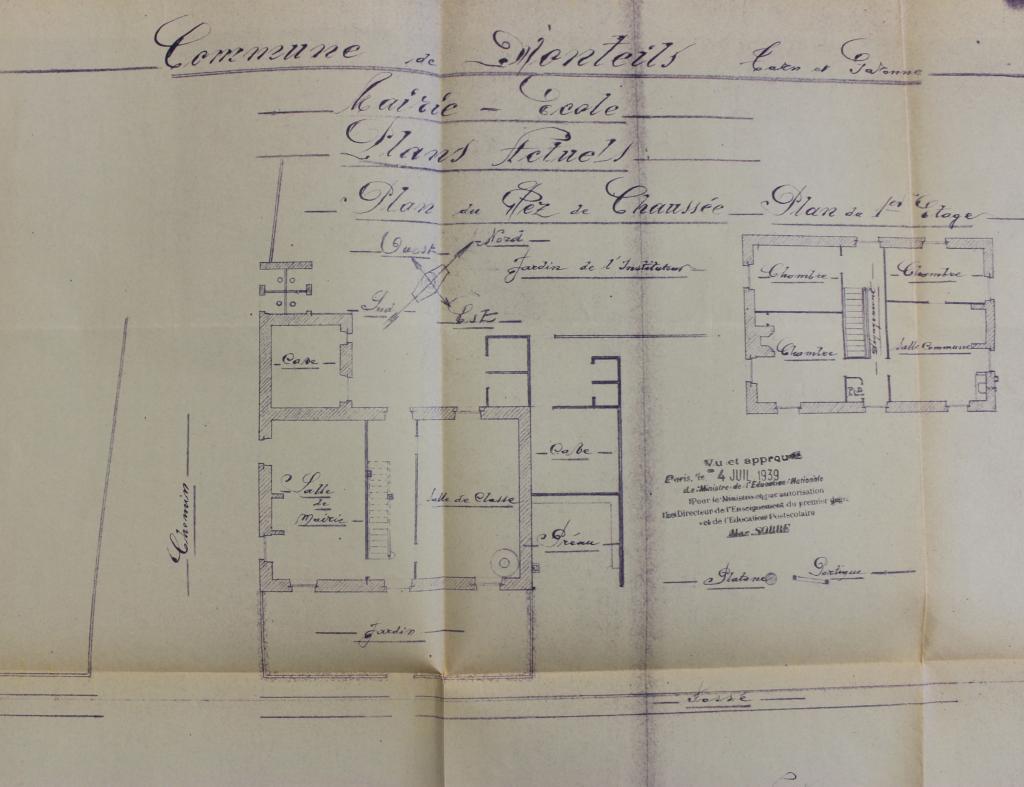 Commune de Monteils Tarn et Garonne
Mairie - Ecole
Plans Actuels
Plan du Réz de Chaussée
Plan du 1er Etage
Ouest
Nord
Sud
Est
Jardin de l'Instituteur
Chambre
Chambre
Chambre
Dégagement
Salle Commune
Cave
Cave
Salle
de
Mairie
Salle de Classe
Préau
Chemin
Jardin
Vu et approuvé
Paris, le 4 JUIL 1939
Le Ministre de l'Education Nationale
Pour le Ministre et par autorisation
Directeur de l'Enseignement du premier degré
et de l'Education Postscolaire
Platane
Portique
Fossé